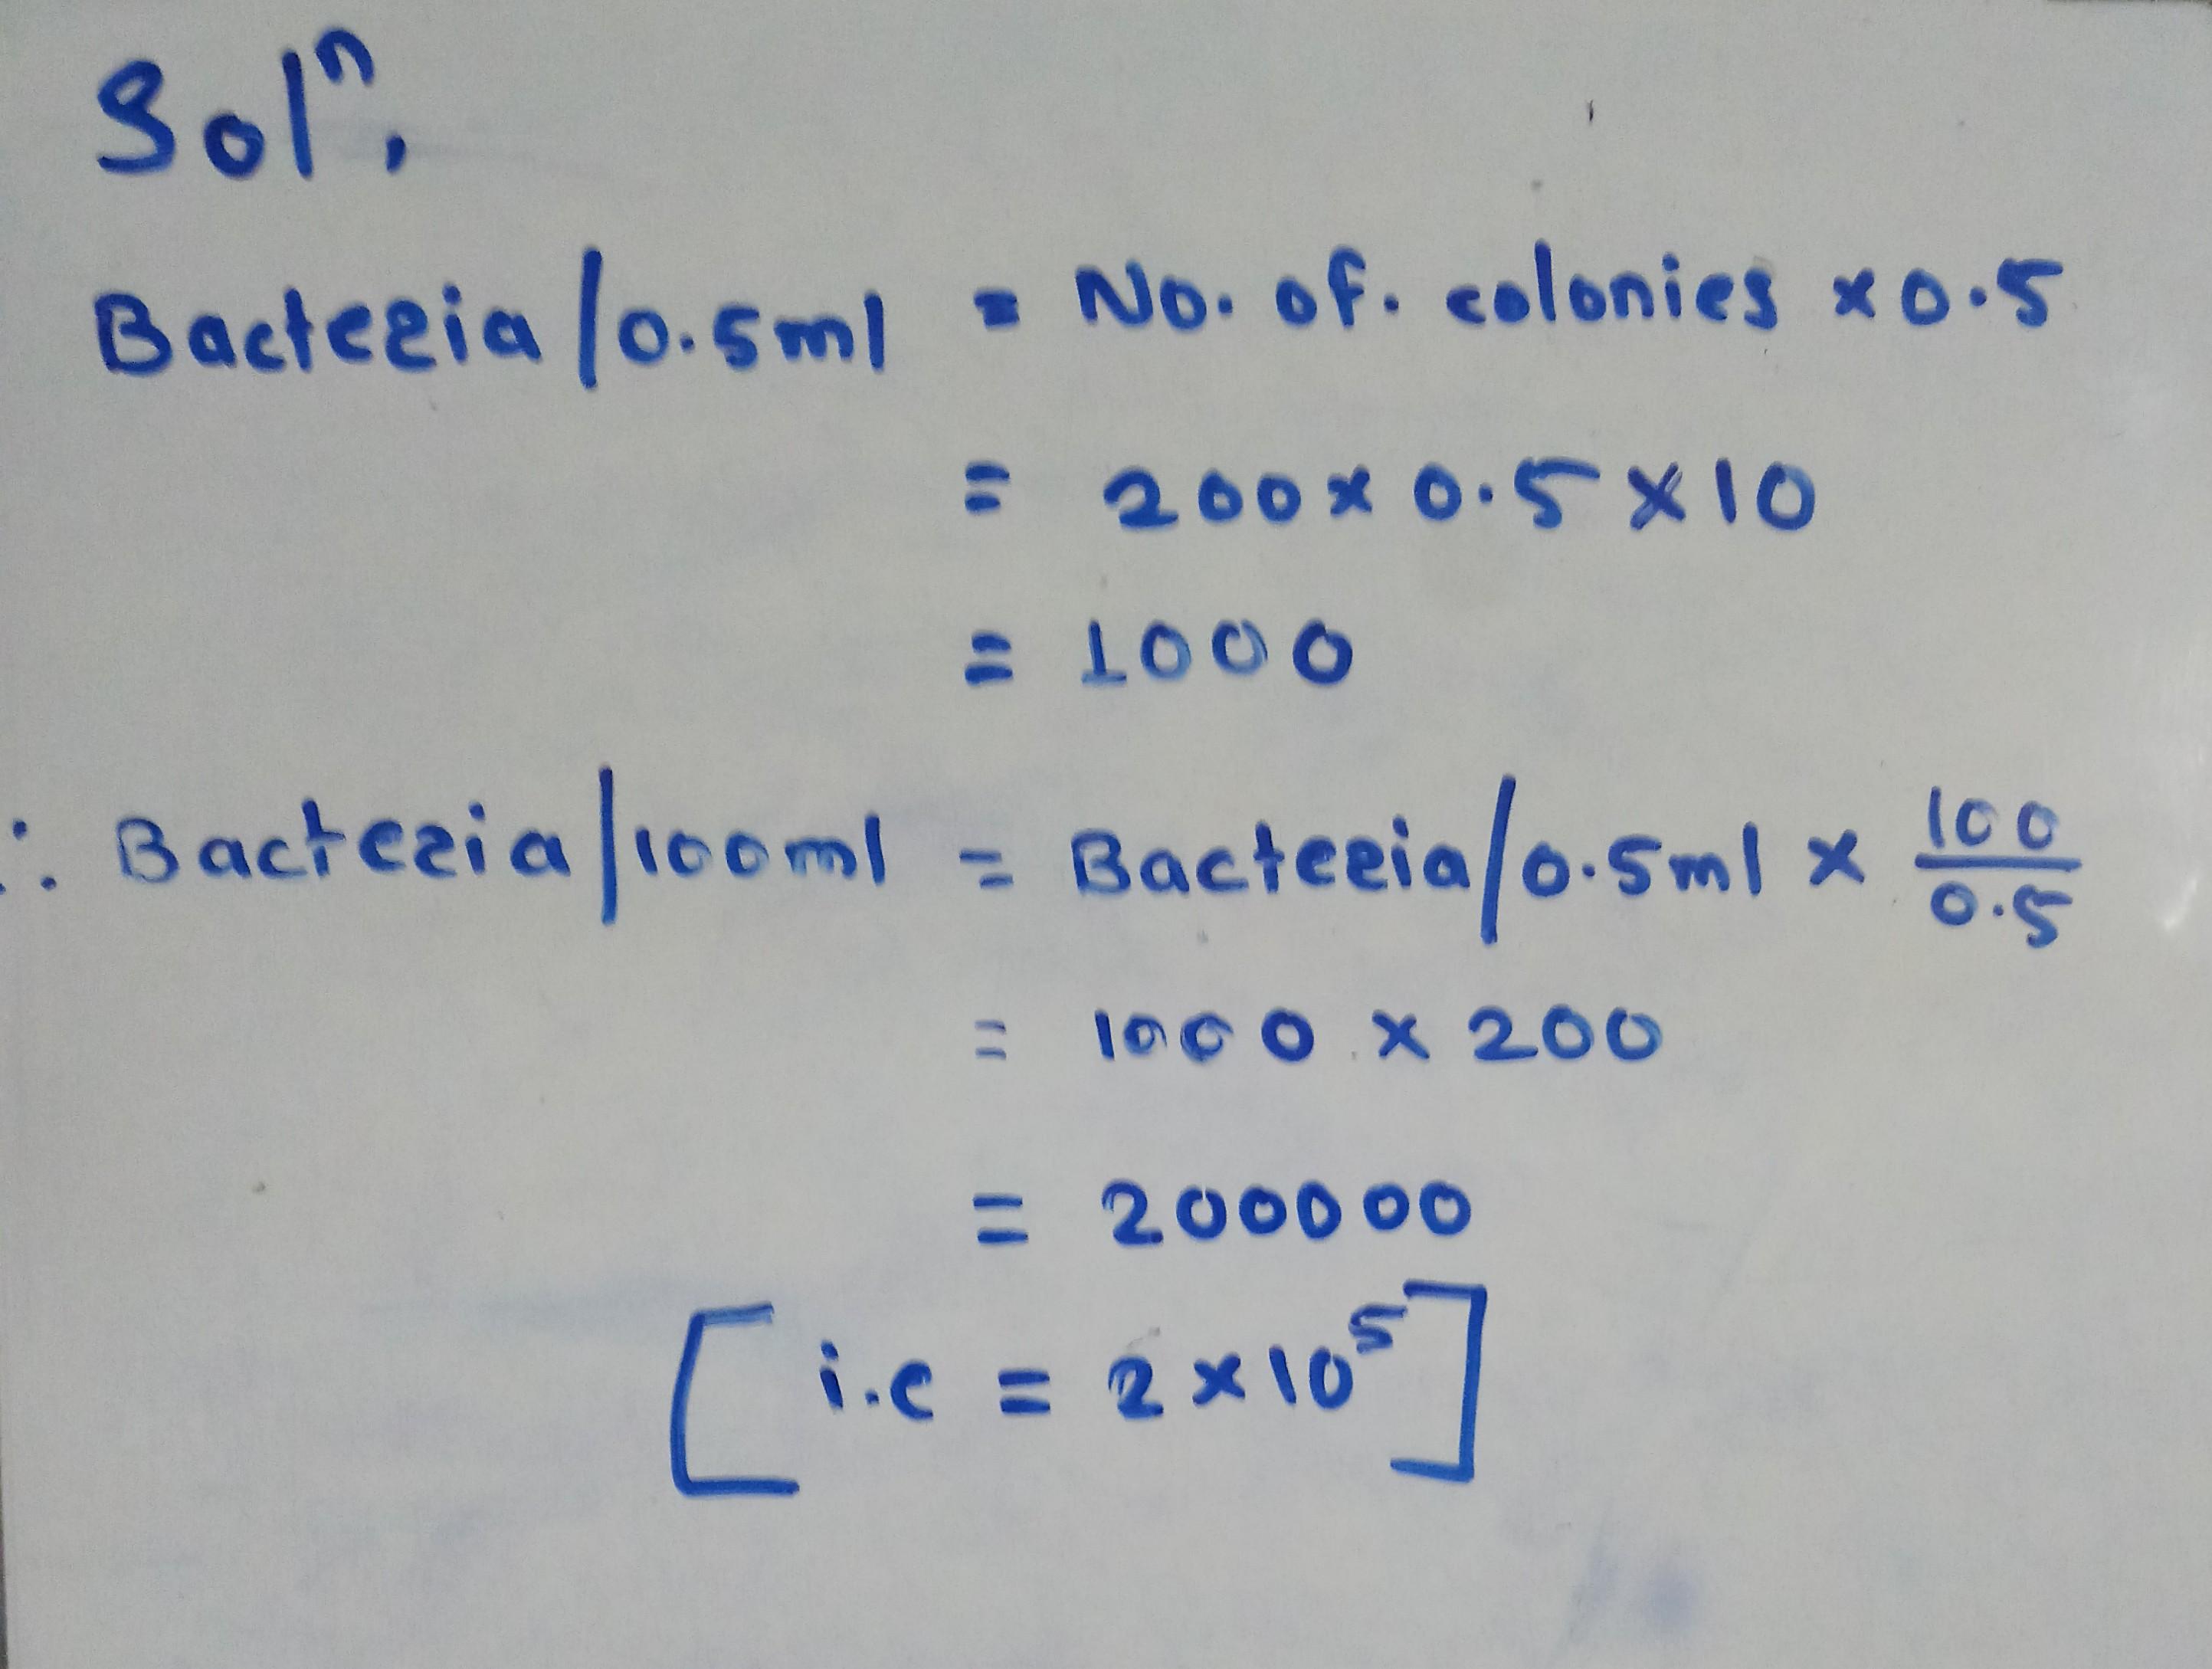 Solⁿ.
Bacteria/0.5ml = No. of. colonies ×0.5
= 200×0.5×10
= 1000
∴ Bacteria/100ml = Bacteria/0.5ml × 100/0.5
= 1000 × 200
= 200000
[i.e = 2×10⁵]